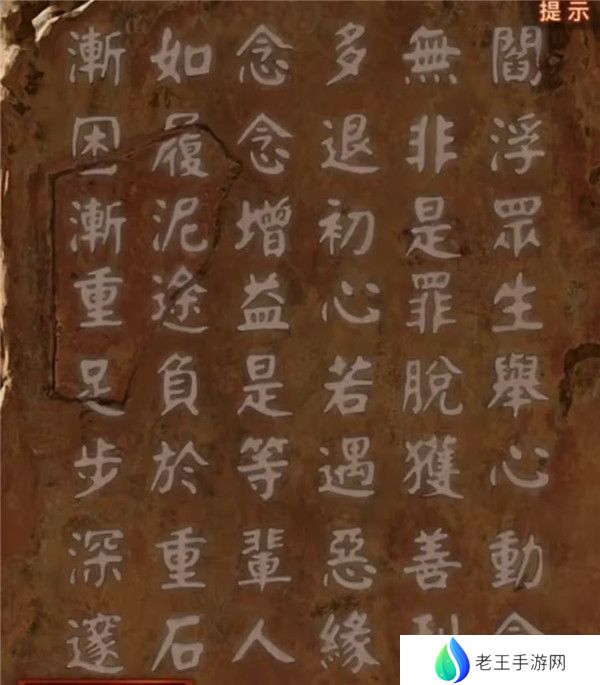 提示
閻浮眾生舉心動
無非是罪脫獲善
多退初心若遇惡緣
念念增益是等輩人
如履泥途負於重石
漸困漸重足步深邃
老王手游网